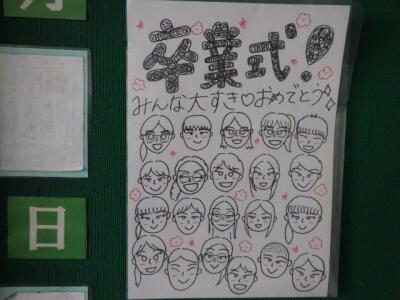 月
卒業式!
みんな大すき♡おめでとう
日